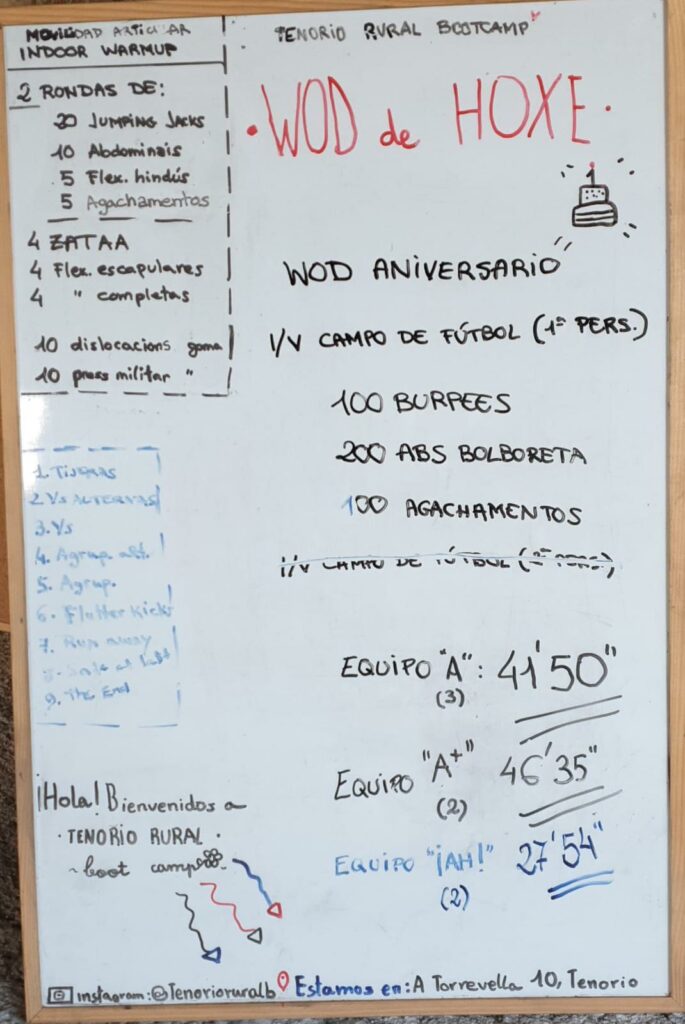 MOVILIDAD ARTICULAR
INDOOR WARMUP
2 RONDAS DE:
20 JUMPING JACKS
10 Abdominais
5 Flex. hindús
5 Agachamentos
4 ZATAA
4 Flex. escapulares
4 " completas
10 dislocacions goma
10 press militar "
1. TIJERAS
2. Vs ALTERNAS
3. Vs
4. Agrup. alt.
5. Agrup.
6. Flutter Kicks
7. Run away
9. The End
¡Hola! Bienvenidos a
· TENORIO RURAL ·
~ boot camp
TENORIO RURAL BOOTCAMP
· WOD de HOXE ·
1
WOD ANIVERSARIO
I/V CAMPO DE FÚTBOL (1ª PERS.)
100 BURPEES
200 ABS BOLBORETA
100 AGACHAMENTOS
I/V CAMPO DE FÚTBOL (2ª PERS.)
EQUIPO "A": 41'50"
(3)
EQUIPO "A+" 46'35"
(2)
EQUIPO "¡AH!" 27'54"
(2)
instagram: @Tenorioruralb Estamos en: A Torrevella 10, Tenorio